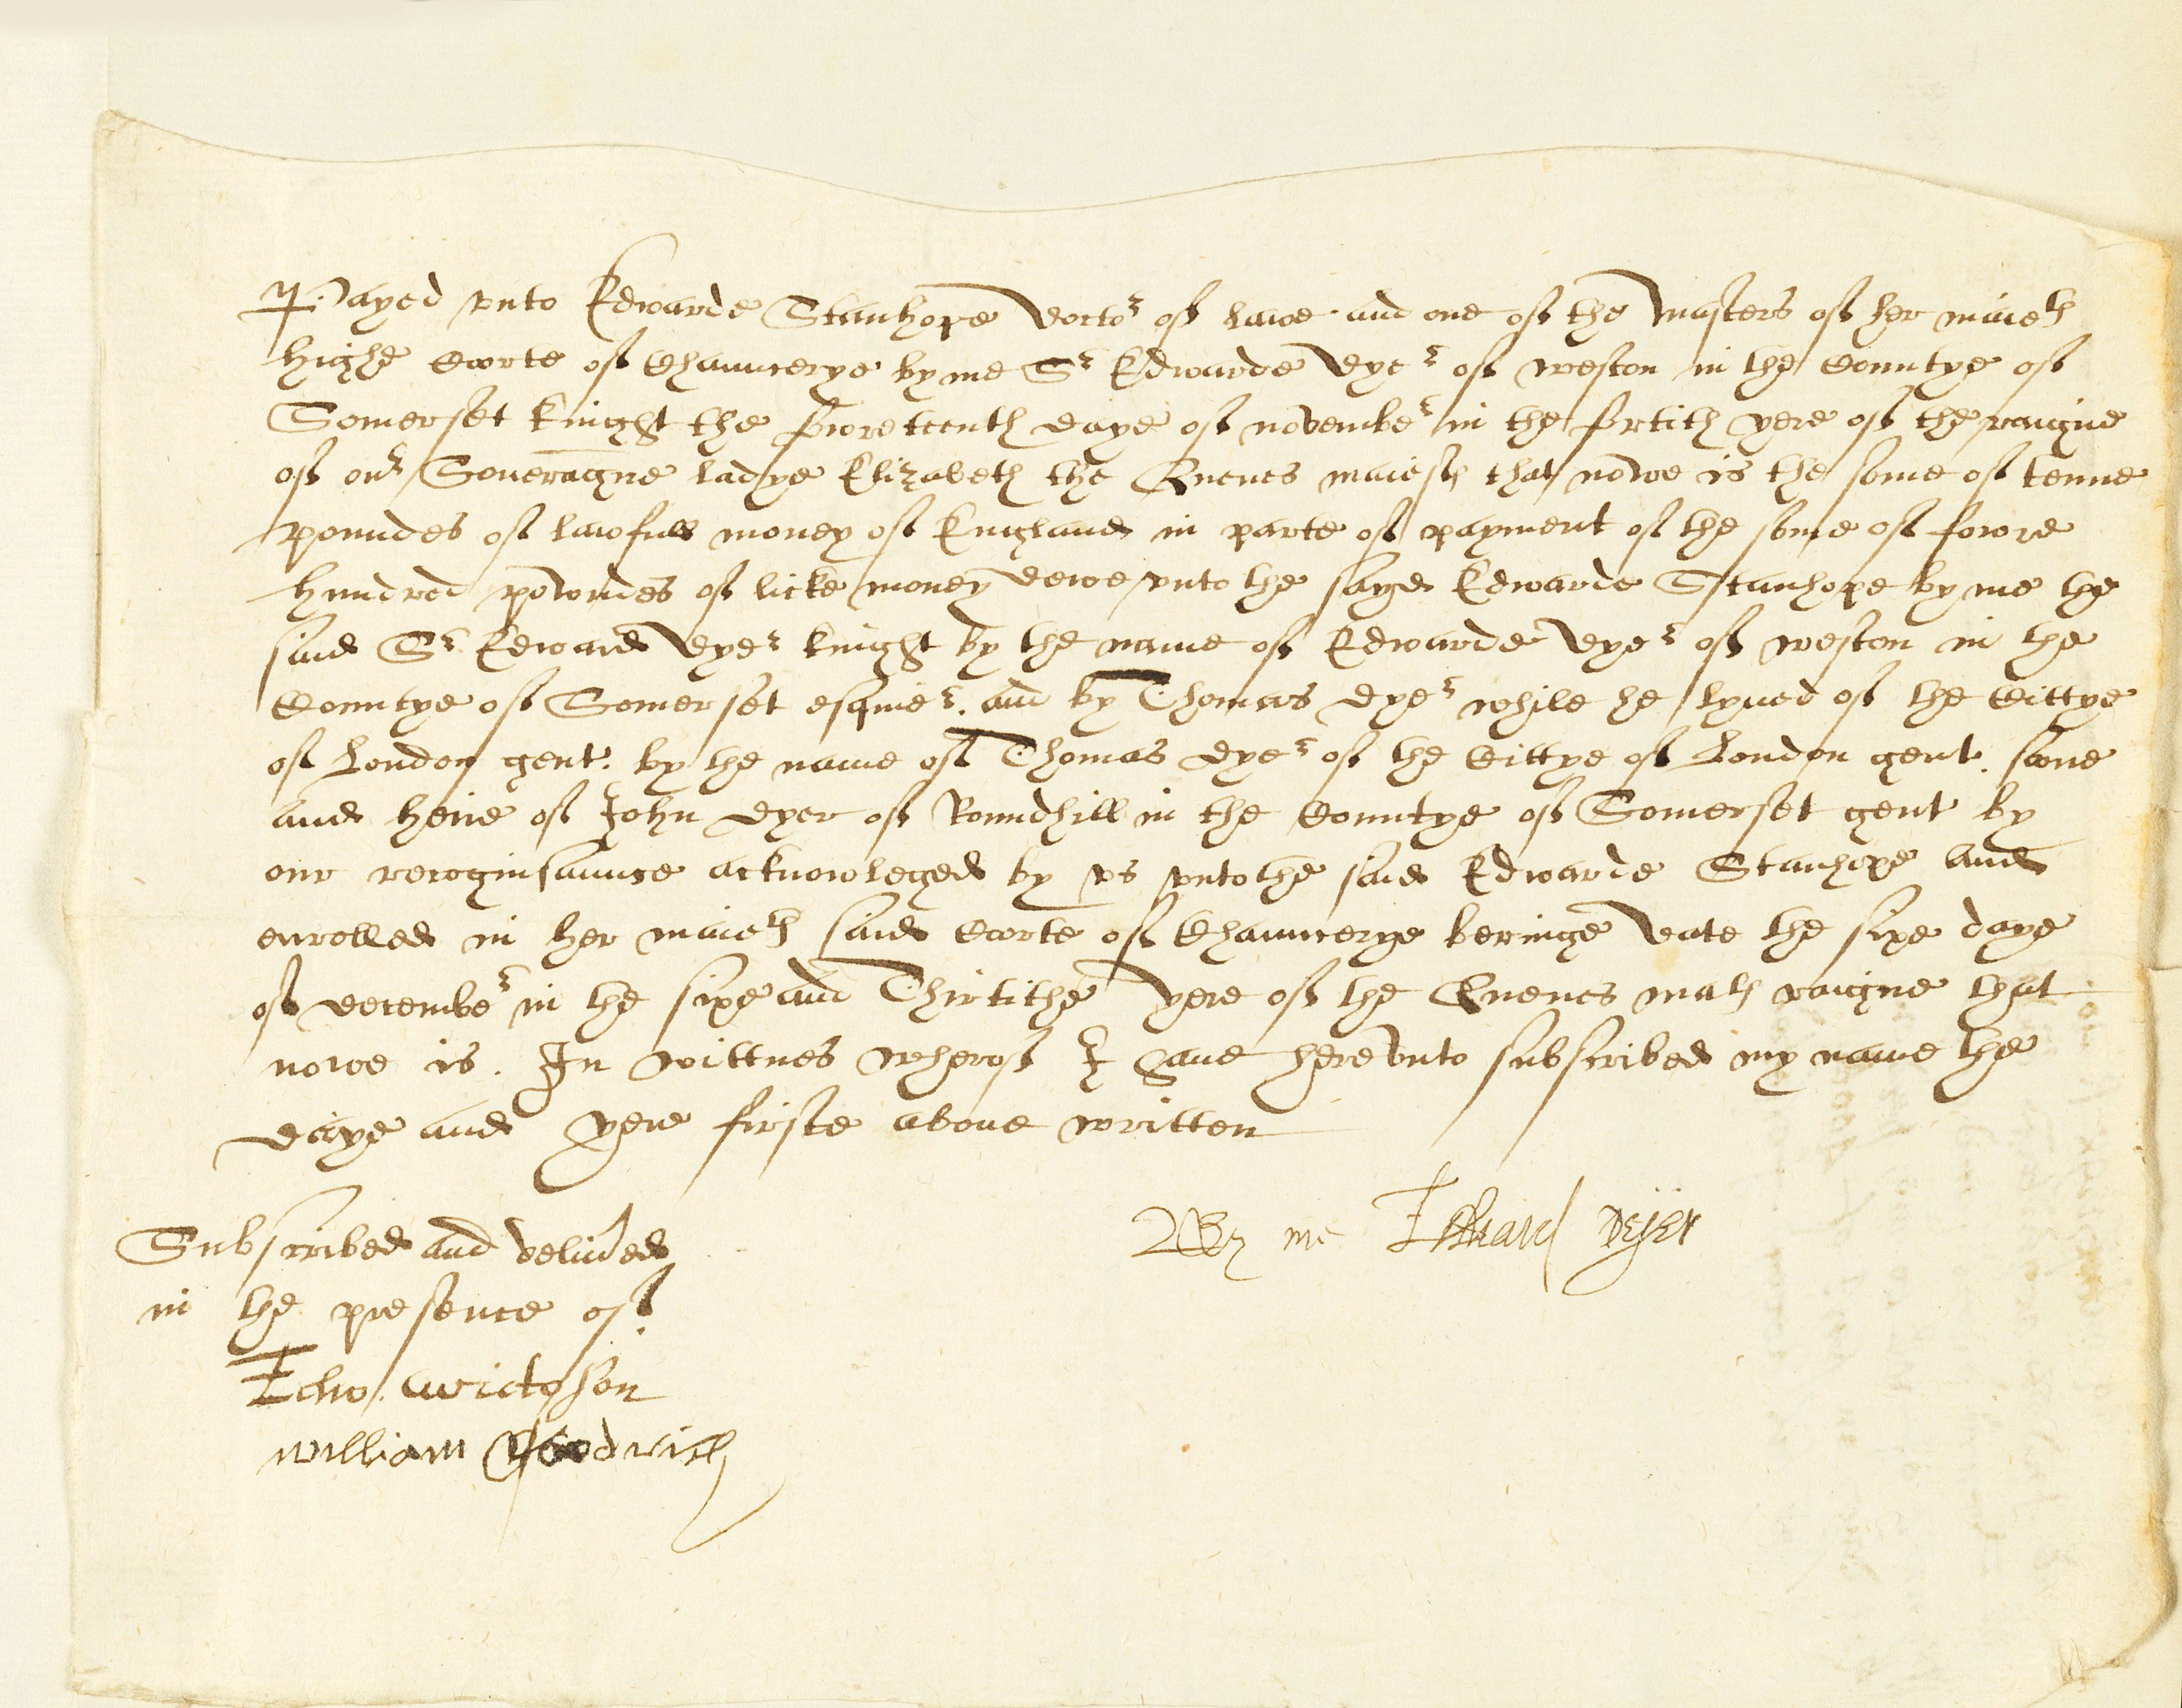 Payed vnto Edwarde Stanhope Doctor of lawe and one of the Masters of her maiesties
highe Coorte of Chauncerye by me Sr Edwarde Dyer of weston in the Countye of
Somerset knight the fowreteenth daye of november in the fortith yere of the raigne
of our Soueraigne ladye Elizabeth the Quenes maiesty that nowe is the some of tenne
poundes of lawfull money of England in parte of payment of the some of fowre
hundred powndes of licke money dewe vnto the sayd Edwarde Stanhope by me the
said Sr Edward Dyer knight by the name of Edwarde Dyer of weston in the
Countye of Somerset esquier. and by Thomas Dyer while he lyued of the Cittye
of London gent. by the name of Thomas Dyer of the Cittye of London gent. sone
and heire of John Dyer of Roundhill in the Countye of Somerset gent by
our recoginsaunce acknowleged by vs vnto the said Edwarde Stanhope and
enrolled in her maiesties said Coorte of Chauncerye beringe date the sixe daye
of december in the sixe and Thirtithe yere of the Quenes maties raigne that
nowe is. In wittnes wherof I haue herevnto subscribed my name the
daye and yere firste aboue written
By me Edward Dyer
Subscribed and deliuered
in the presence of.
william Goodrich